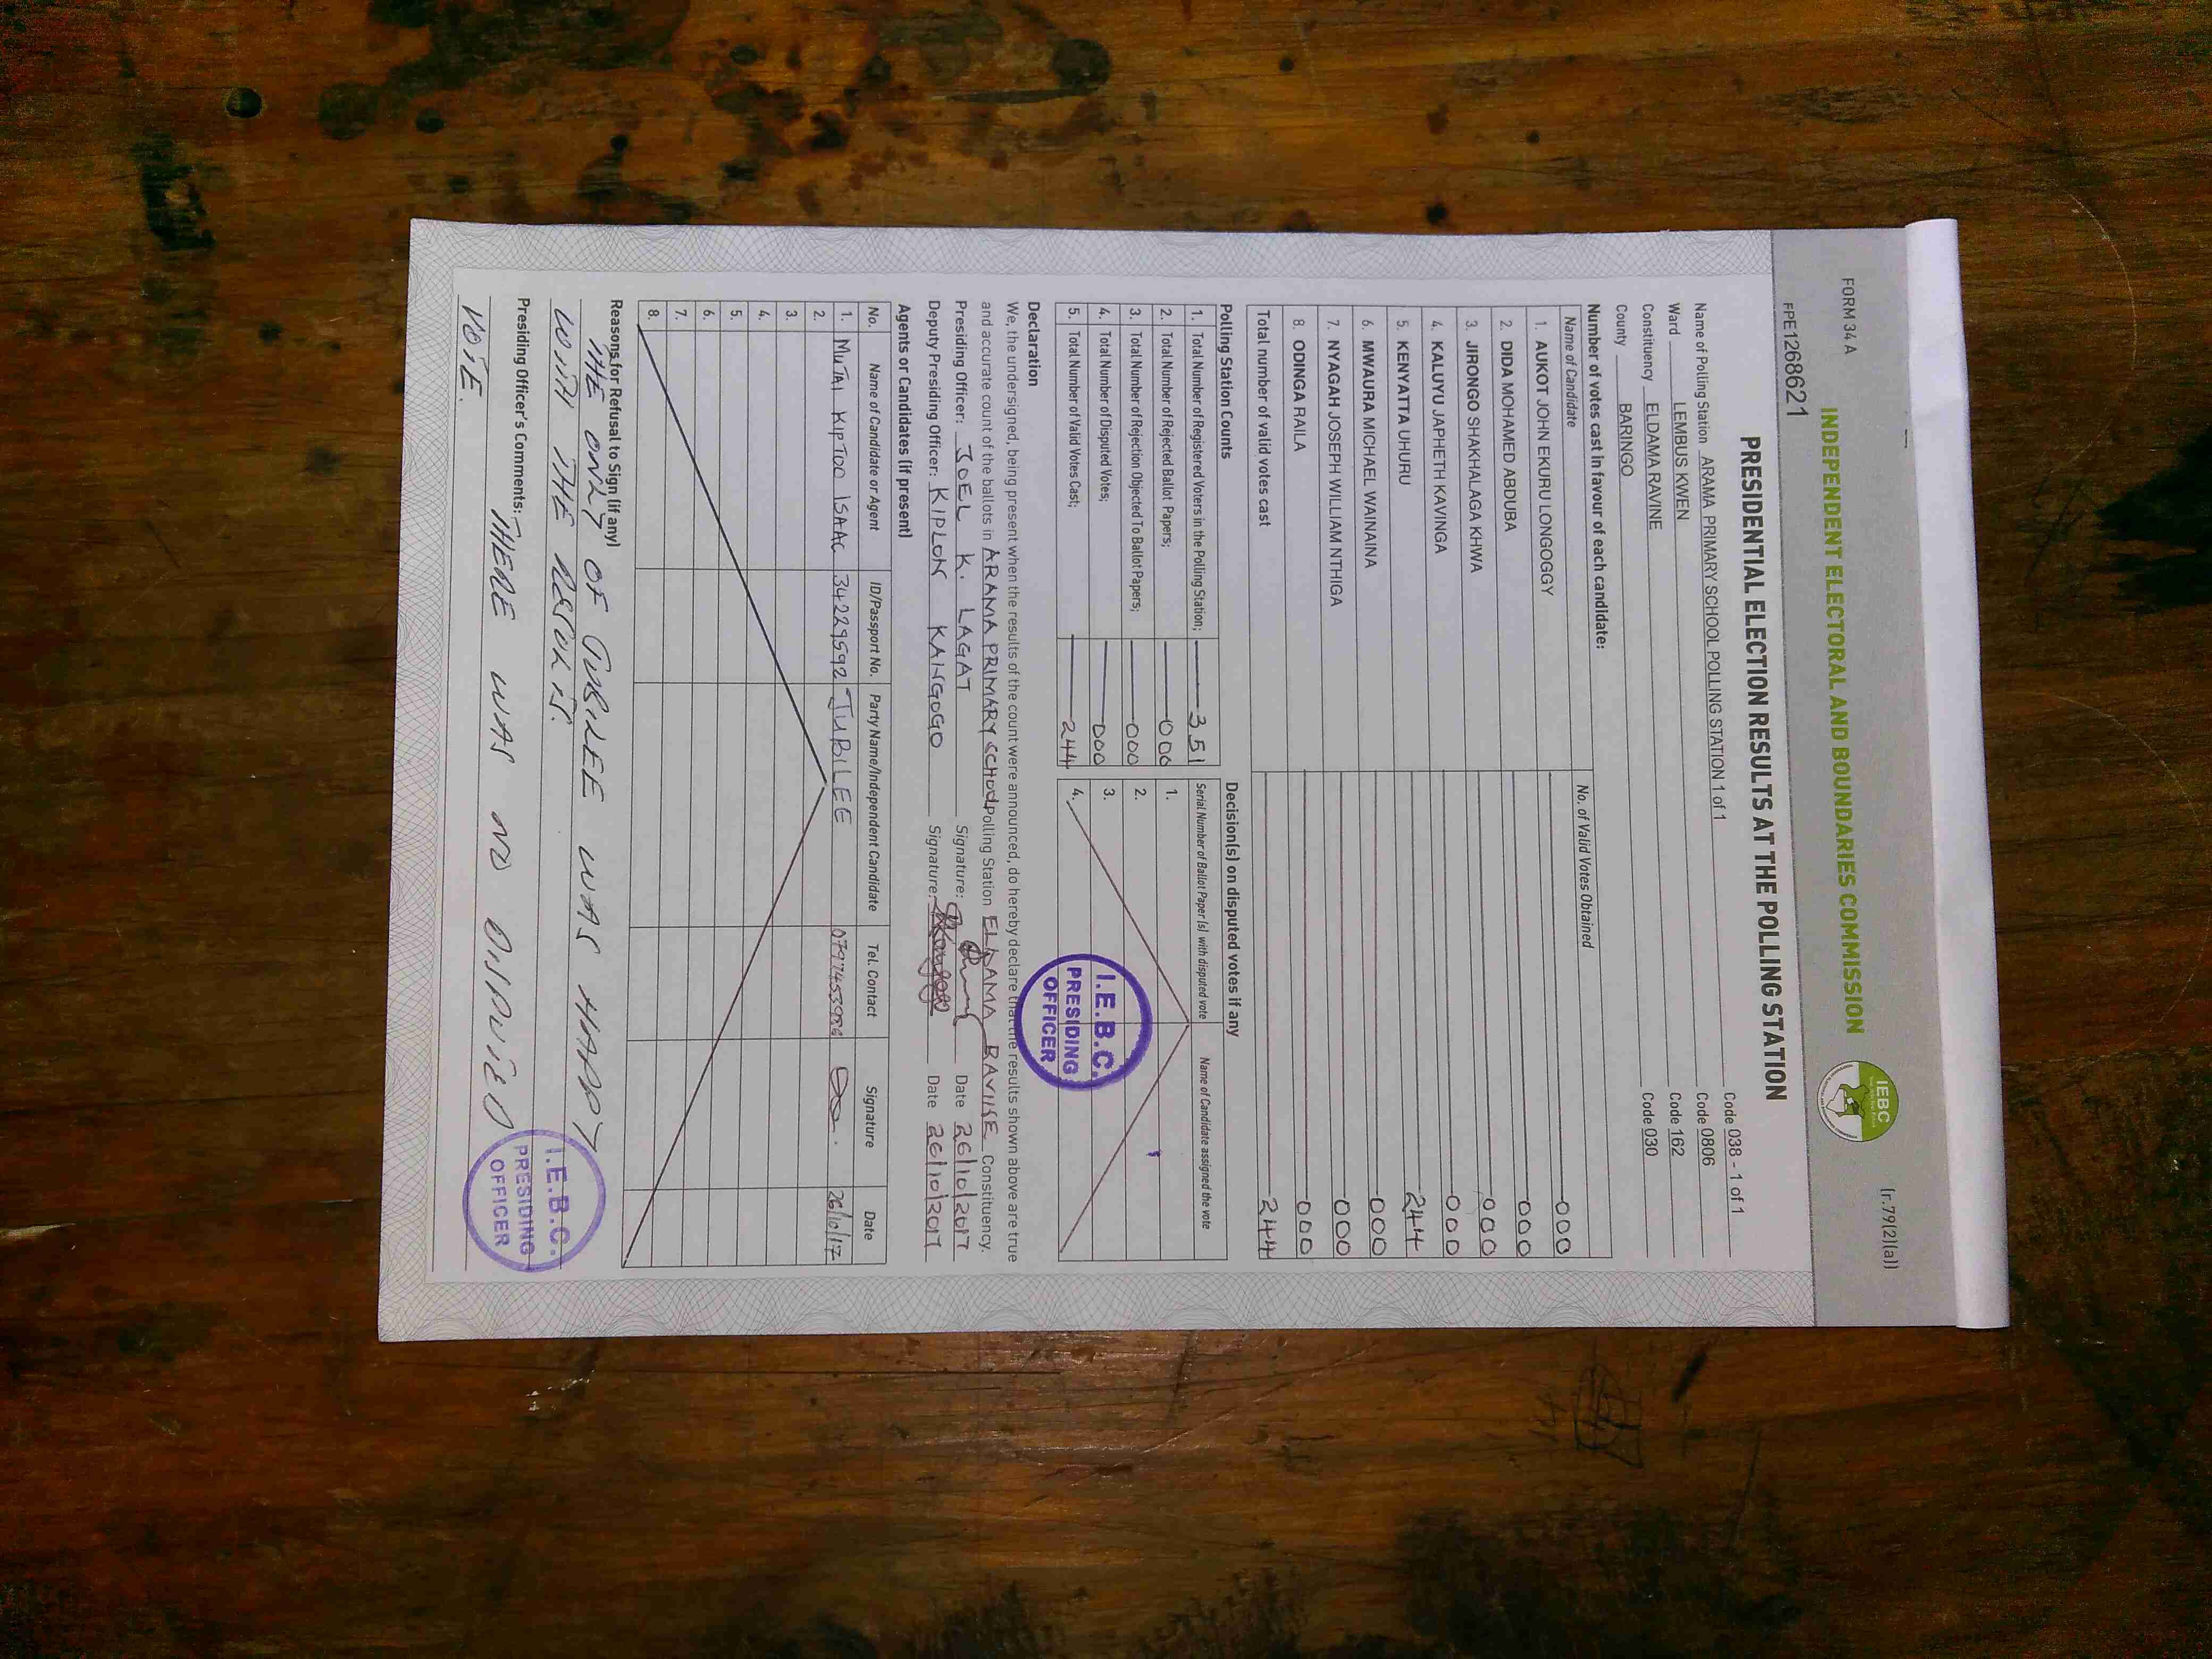 FORM 34 A
[r.79(2)(a)]
INDEPENDENT ELECTORAL AND BOUNDARIES COMMISSION
IEBC
FPE1268621
PRESIDENTIAL ELECTION RESULTS AT THE POLLING STATION
Name of Polling Station ARAMA PRIMARY SCHOOL POLLING STATION 1 of 1 Code 038 - 1 of 1
Ward LEMBUS KWEN Code 0806
Constituency ELDAMA RAVINE Code 162
County BARINGO Code 030
Number of votes cast in favour of each candidate:
Name of Candidate No. of Valid Votes Obtained
1. AUKOT JOHN EKURU LONGOGGY 000
2. DIDA MOHAMED ABDUBA 000
3. JIRONGO SHAKHALAGA KHWA 000
4. KALUYU JAPHETH KAVINGA 000
5. KENYATTA UHURU 244
6. MWAURA MICHAEL WAINAINA 000
7. NYAGAH JOSEPH WILLIAM NTHIGA 000
8. ODINGA RAILA 000
Total number of valid votes cast 244
Polling Station Counts
1. Total Number of Registered Voters in the Polling Station; 351
2. Total Number of Rejected Ballot Papers; 000
3. Total Number of Rejection Objected To Ballot Papers; 000
4. Total Number of Disputed Votes; 000
5. Total Number of Valid Votes Cast; 244
Decision(s) on disputed votes if any
Serial Number of Ballot Paper (s) with disputed vote Name of Candidate assigned the vote
1.
2.
3.
4.
I.E.B.C.
PRESIDING
OFFICER
Declaration
We, the undersigned, being present when the results of the count were announced, do hereby declare that the results shown above are true
and accurate count of the ballots in ARAMA PRIMARY SCHOOL Polling Station ELDAMA RAVINE Constituency.
Presiding Officer: JOEL K. LAGAT Signature: Date 26/10/2017
Deputy Presiding Officer: KIPLON KAINGOGO Signature: Date 26/10/2017
Agents or Candidates (if present)
No. Name of Candidate or Agent ID/Passport No. Party Name/Independent Candidate Tel. Contact Signature Date
1. MUTAI KIPTOO ISAAC 34229592 JUBILEE 26/10/17
2.
3.
4.
5.
6.
7.
8.
Reasons for Refusal to Sign (if any)
THE ONLY OF JUBILEE WAS HAPPY
WITH THE RESULTS.
Presiding Officer's Comments: THERE WAS NO DISPUTED
VOTE.
I.E.B.C.
PRESIDING
OFFICER